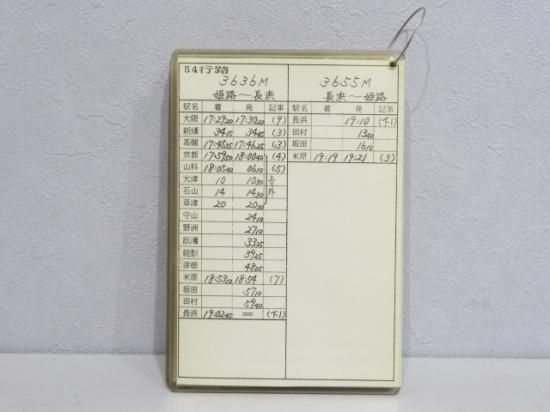 54行路
3636M
姫路〜長浜
駅名 着 発 記事
大阪 17:29 20 17:30 20 (9)
新大 34 15 34 45 (3)
高槻 17:45 35 17:46 25 (3)
京都 17:59 50 18:00 40 (4)
山科 18:05 40 06 10 (5)
大津 10 10 30
石山 14 14 30
草津 20 20 30
守山 24 10
野洲 27 10
33 05
能登 39 25
彦根 48 05
米原 18:53 10 18:54 (7)
坂田 57 10
田村 59 40
長浜 19:02 45 = (下1)
3655M
長浜〜姫路
駅名 着 発 記事
長浜 19:10 (下1)
田村 13 40
坂田 16 10
米原 19:19 19:21 (3)